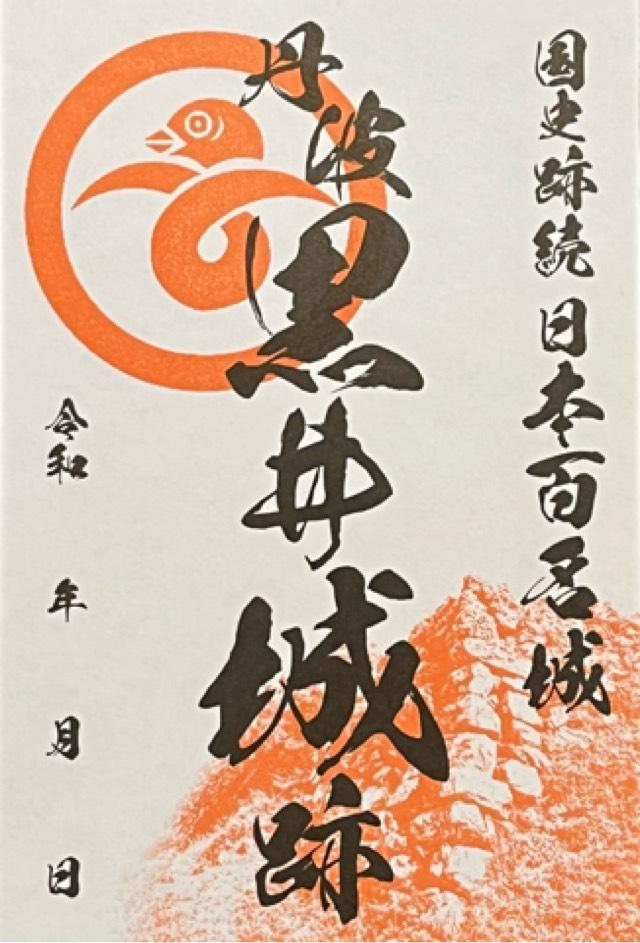 国史跡続日本百名城
丹波黒井城跡
令和 年 月 日